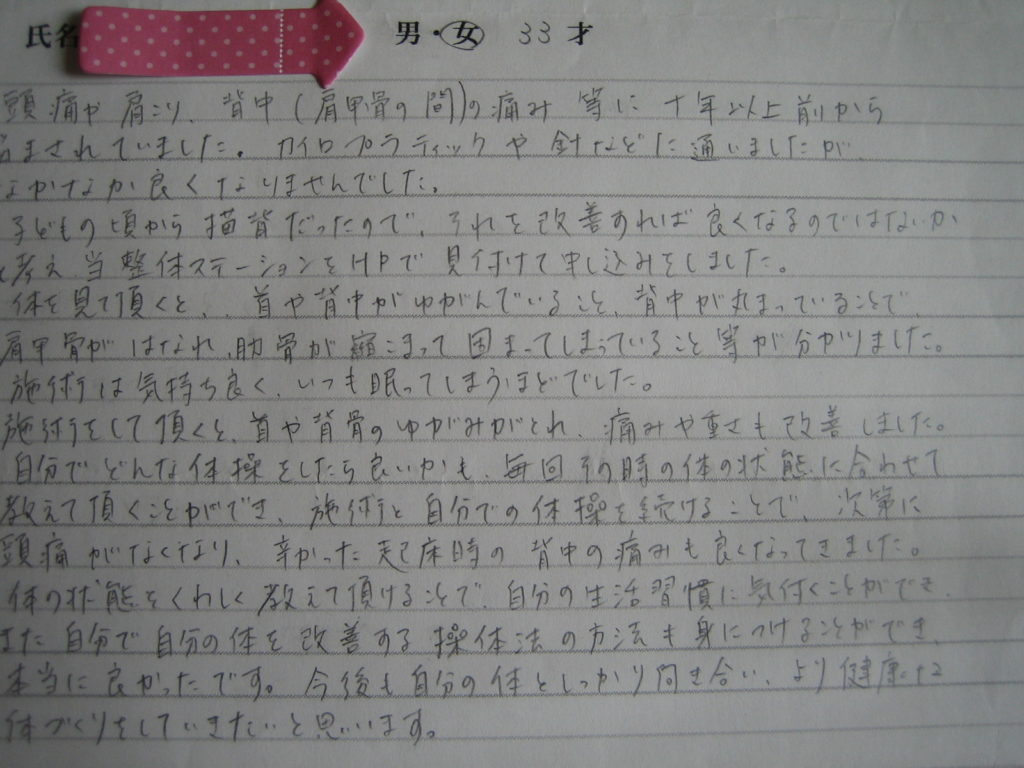 氏名 男・女 33才
頭痛や肩こり、背中(肩甲骨の間)の痛み等に十年以上前から
まされていました。カイロプラティックや針などに通いましたが、
なかなか良くなりませんでした。
子どもの頃から猫背だったので、それを改善すれば良くなるのではないか
と考え当整体ステーションをHPで見付けて申し込みをしました。
体を見て頂くと、首や背中がゆがんでいること、背中が丸まっていることで、
肩甲骨がはなれ、肋骨が縮こまって固まってしまっていること等が分かりました。
施術は気持ち良く、いつも眠ってしまうほどでした。
施術をして頂くと、首や背骨のゆがみがとれ、痛みや重さも改善しました。
自分でどんな体操をしたら良いかも、毎回その時の体の状態に合わせて
教えて頂くことができ、施術と自分での体操を続けることで、次第に
頭痛がなくなり、辛かった起床時の背中の痛みも良くなってきました。
体の状態をくわしく教えて頂けることで、自分の生活習慣に気付くことができ、
また自分で自分の体を改善する操体法の方法も身につけることができ、
本当に良かったです。今後も自分の体としっかり向き合い、より健康な
体づくりをしていきたいと思います。